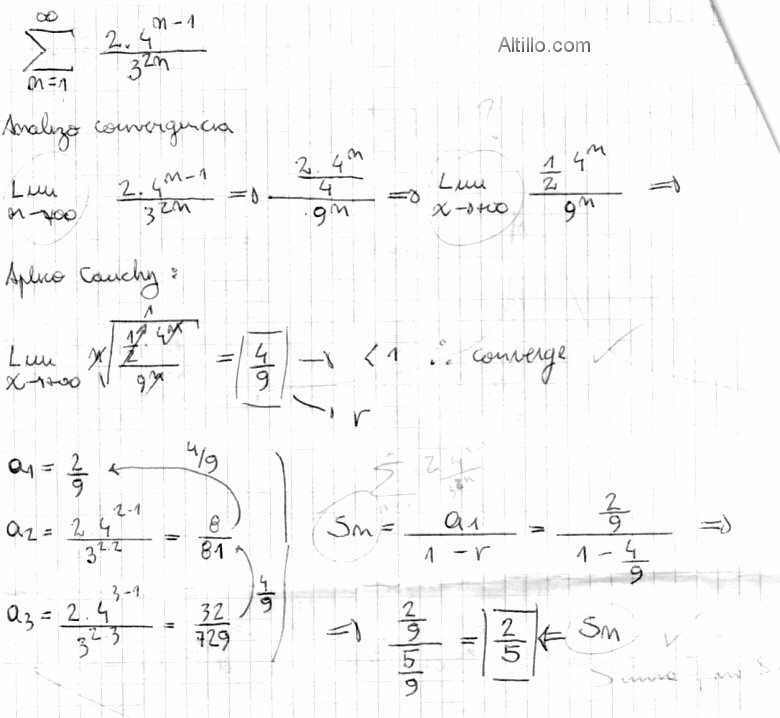 ∞
∑ 2.4^(n-1) / 3^(2n)
n=1
Altillo.com
Analizo convergencia
Lim n→∞ 2.4^(n-1) / 3^(2n) ⇒ (2.4^n / 4) / 9^n ⇒ Lim x→+∞ (1/2 4^n) / 9^n ⇒
Aplico Cauchy:
Lim x→+∞ ⁿ√(1/2 . 4^n / 9^n) = 4/9 → < 1 ∴ converge ✓
1
→ r
a1 = 2/9
4/9
a2 = 2 4^(2-1) / 3^(2.2) = 8/81
Sn = a1 / (1 - r) = (2/9) / (1 - 4/9) ⇒
4/9
a3 = 2.4^(3-1) / 3^(2 3) = 32/729
⇒ (2/9) / (5/9) = 2/5 ⇐ Sn